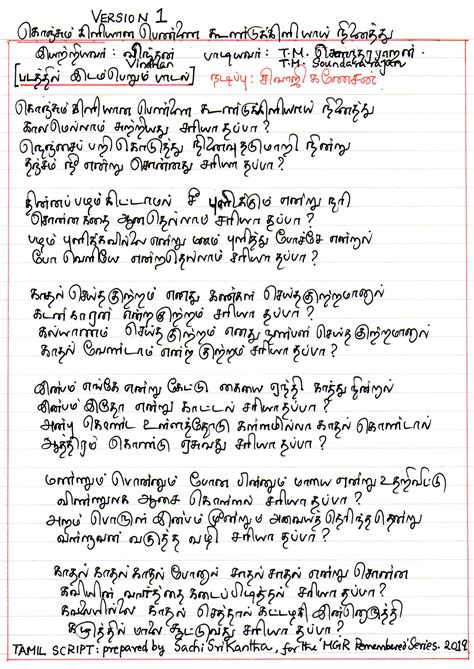 VERSION 1
கொஞ்சும் கிளியான பெண்ணை கூண்டுக்கிளியாய் நினைத்து
இயற்றியவர்: விந்தன் பாடியவர்: T.M. சௌந்தரராஜன்.
Vindhan T.M. Soundararajan
[படத்தில் இடம்பெறும் பாடல்] நடிப்பு: சிவாஜி கணேசன்
கொஞ்சும் கிளியான பெண்ணை கூண்டுக்கிளியாய் நினைத்து
காலமெல்லாம் சுற்றியது சரியா தப்பா?
நெஞ்சைப் பறி கொடுத்து நினைவு தடுமாறி நின்று
தஞ்சம் நீ என்று சொன்னது சரியா தப்பா?
தின்னப் பழம் கிட்டாமல் சீ புளிக்கும் என்று நரி
சொன்ன கதை ஆனதெல்லாம் சரியா தப்பா?
பழம் புளிக்கவில்லை என்று மனம் புளித்து போச்சே என்றால்
போ வெளியே என்றதெல்லாம் சரியா தப்பா?
காதல் செய்த குற்றம் எனது கண்கள் செய்த குற்றமானால்
கடன்காரன் என்ற குற்றம் சரியா தப்பா?
கல்யாணம் செய்த குற்றம் எனது நண்பன் செய்த குற்றமானால்
காதல் வேண்டாம் என்ற குற்றம் சரியா தப்பா?
இன்பம் எங்கே என்று கேட்டு கையை ஏந்தி காத்து நின்றால்
இன்பம் இதோ என்று காட்டல் சரியா தப்பா?
அன்பு கொண்ட உள்ளத்தோடு கள்ளமில்லா காதல் கொண்டால்
ஆத்திரம் கொண்டு ஏசுவது சரியா தப்பா?
மண்ணும் பொன்னும் போல பெண்ணும் மாயை என்று உதறிவிட்டு
விண்ணுலக ஆசை கொண்டால் சரியா தப்பா?
அறம் பொருள் இன்பம் மூன்றும் அவையத் தெரிந்தென்று
வள்ளுவன் வகுத்த வழி சரியா தப்பா?
காதல் காதல் காதல் போனால் சாதல் சாதல் என்று சொன்ன
கவியின் வார்த்தை கடைப்பிடித்தல் சரியா தப்பா?
கவலையில்லை காதல் செத்தால் கட்டழகி இன்னொருத்தி
கழுத்தில் மாலை சூட்டுவது சரியா தப்பா?
TAMIL SCRIPT: prepared by Sachi Sri Kantha, for the 'MGR Remembered' Series. 2019